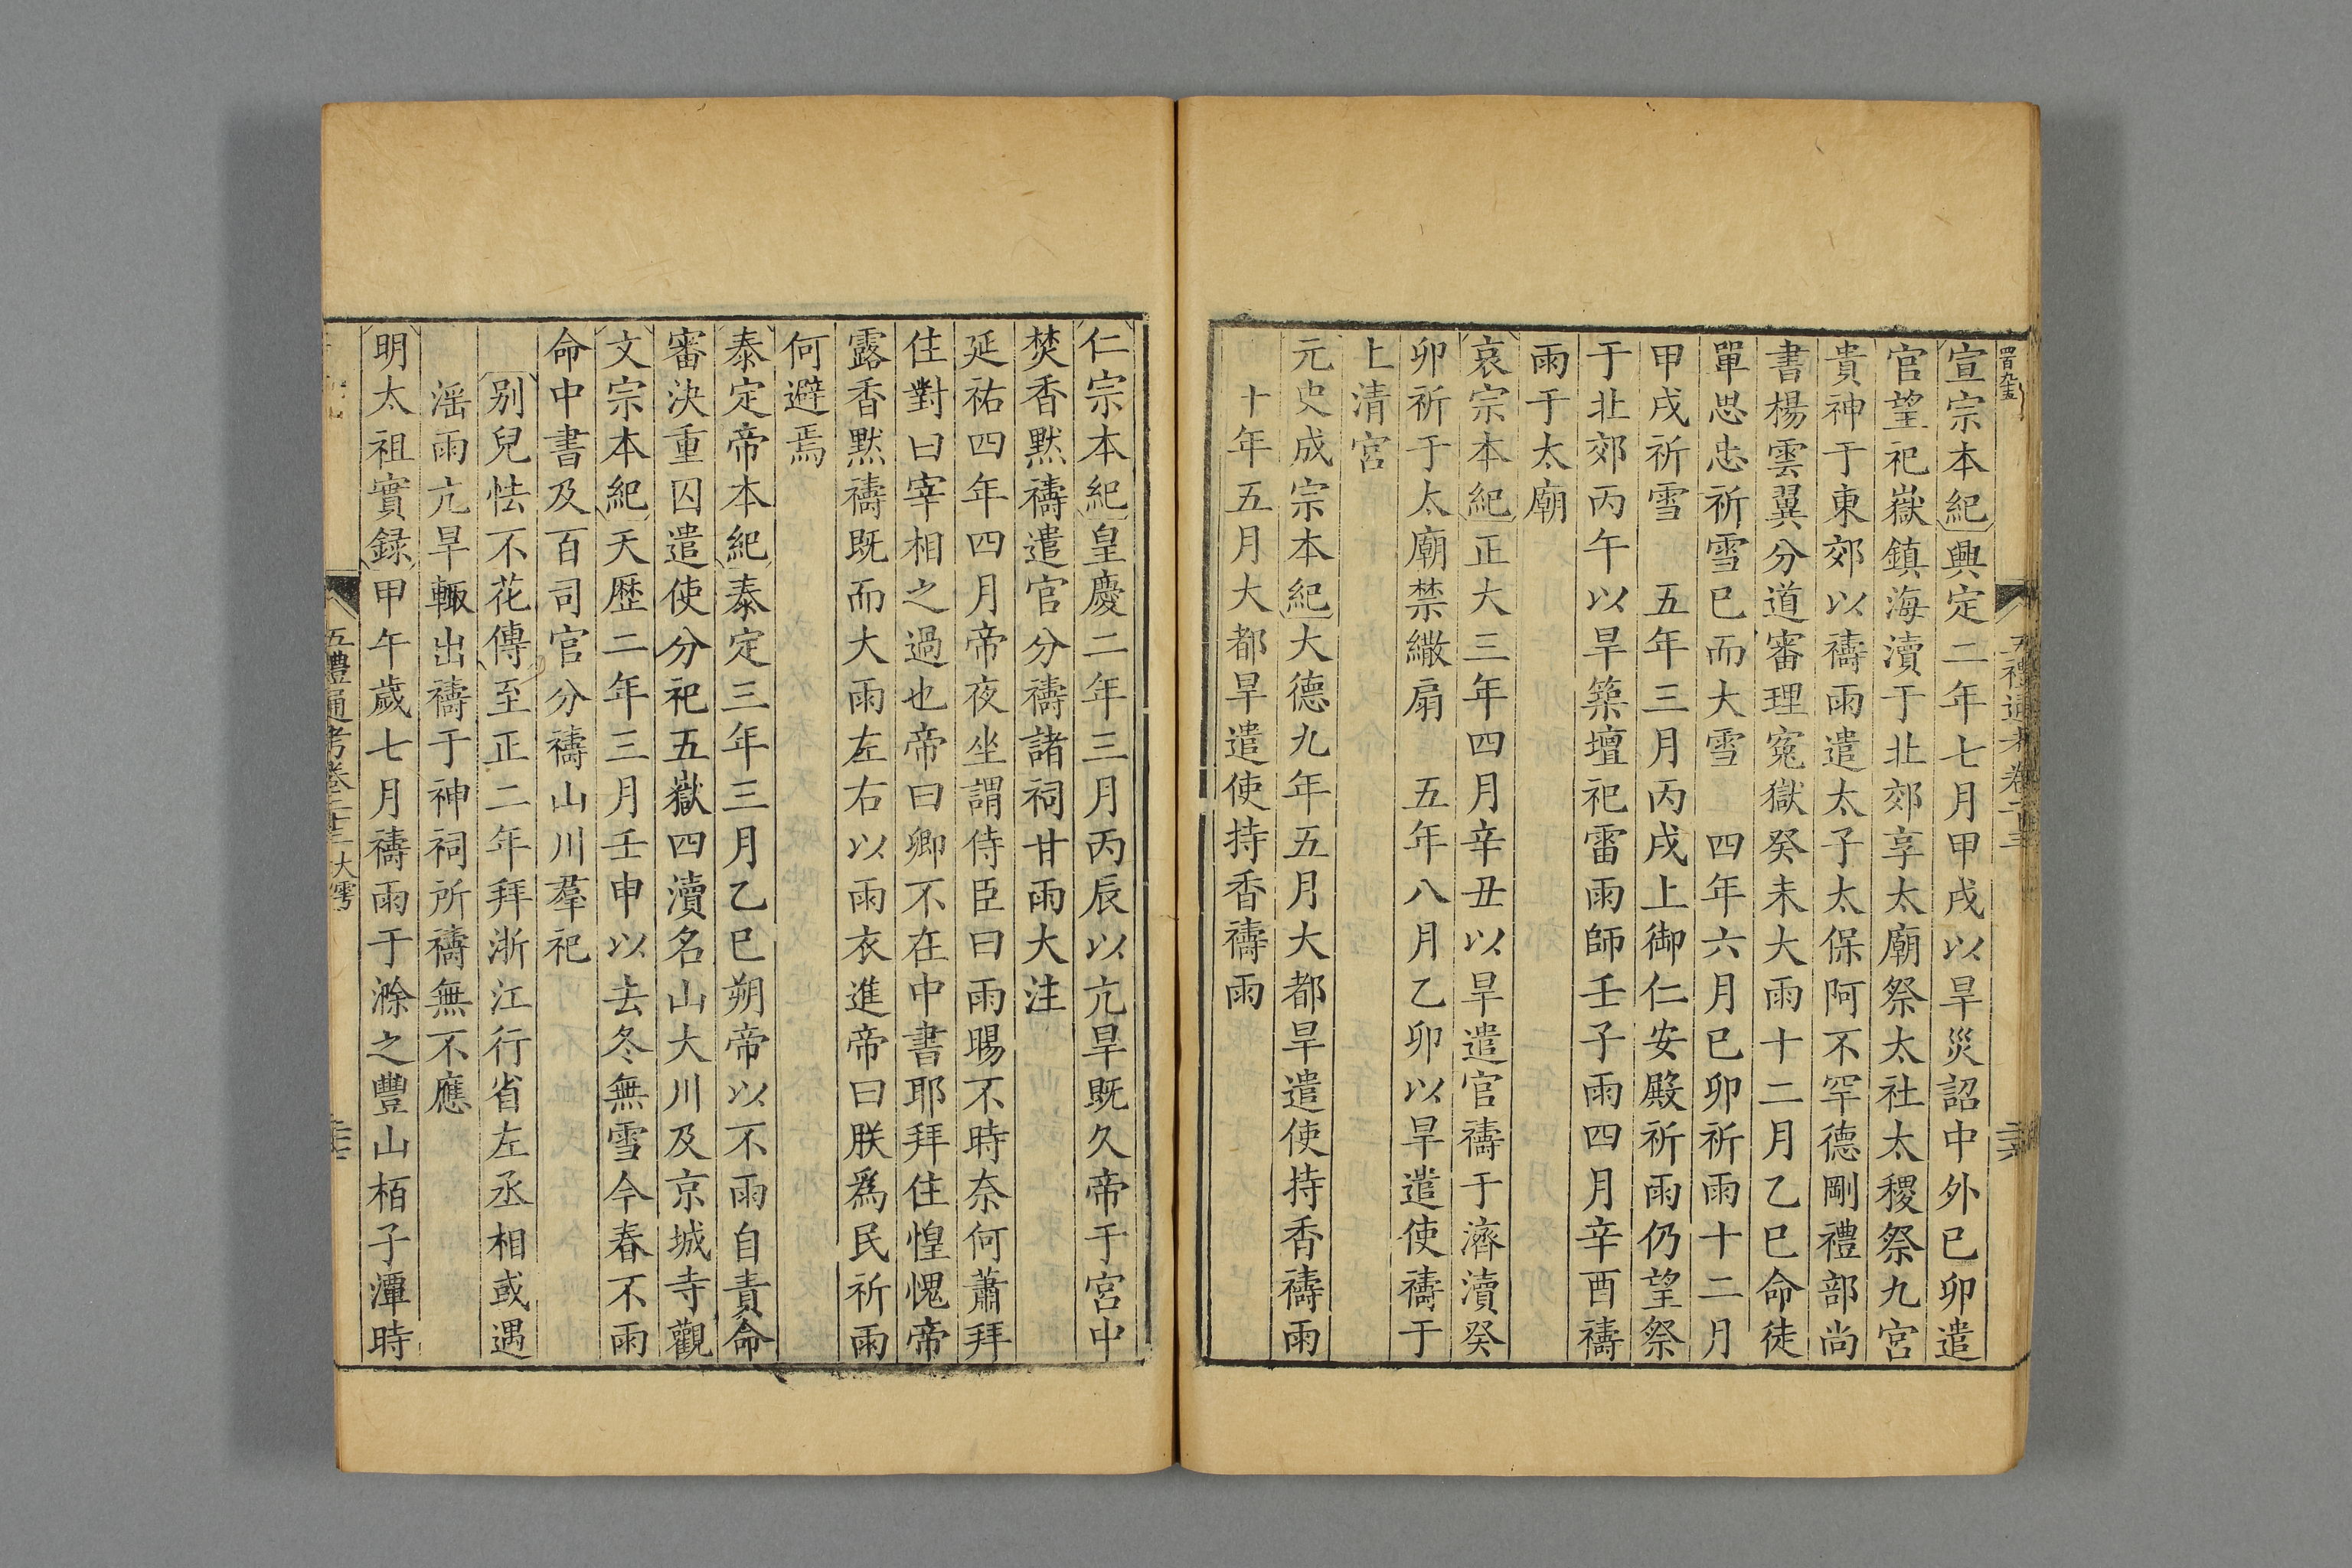 五禮通考卷二十三
宣宗本紀興定二年七月甲戌以旱災詔中外已卯遣
官望祀嶽鎮海瀆于北郊享太廟祭太社太稷祭九宮
貴神于東郊以禱雨遣太子太保阿不罕德剛禮部尚
書楊雲翼分道審理寃獄癸未大雨十二月乙巳命徒
單思忠祈雪已而大雪　四年六月已卯祈雨十二月
甲戌祈雪　五年三月丙戌上御仁安殿祈雨仍望祭
于北郊丙午以旱築壇祀雷雨師壬子雨四月辛酉禱
雨于太廟
哀宗本紀正大三年四月辛丑以旱遣官禱于濟瀆癸
卯祈于太廟禁繖扇　五年八月乙卯以旱遣使禱于
上清宮
元史成宗本紀大德九年五月大都旱遣使持香禱雨
十年五月大都旱遣使持香禱雨
仁宗本紀皇慶二年三月丙辰以亢旱既久帝于宮中
焚香黙禱遣官分禱諸祠甘雨大注
延祐四年四月帝夜坐謂侍臣曰雨暘不時奈何蕭拜
住對曰宰相之過也帝曰卿不在中書耶拜住惶愧帝
露香黙禱既而大雨左右以雨衣進帝曰朕爲民祈雨
何避焉
泰定帝本紀泰定三年三月乙巳朔帝以不雨自責命
審決重囚遣使分祀五嶽四瀆名山大川及京城寺觀
文宗本紀天歷二年三月壬申以去冬無雪今春不雨
命中書及百司官分禱山川羣祀
别兒怯不花傳至正二年拜浙江行省左丞相或遇
滛雨亢旱輙出禱于神祠所禱無不應
明太祖實録甲午歲七月禱雨于滁之豐山栢子潭時
五禮通考卷二十三大雩